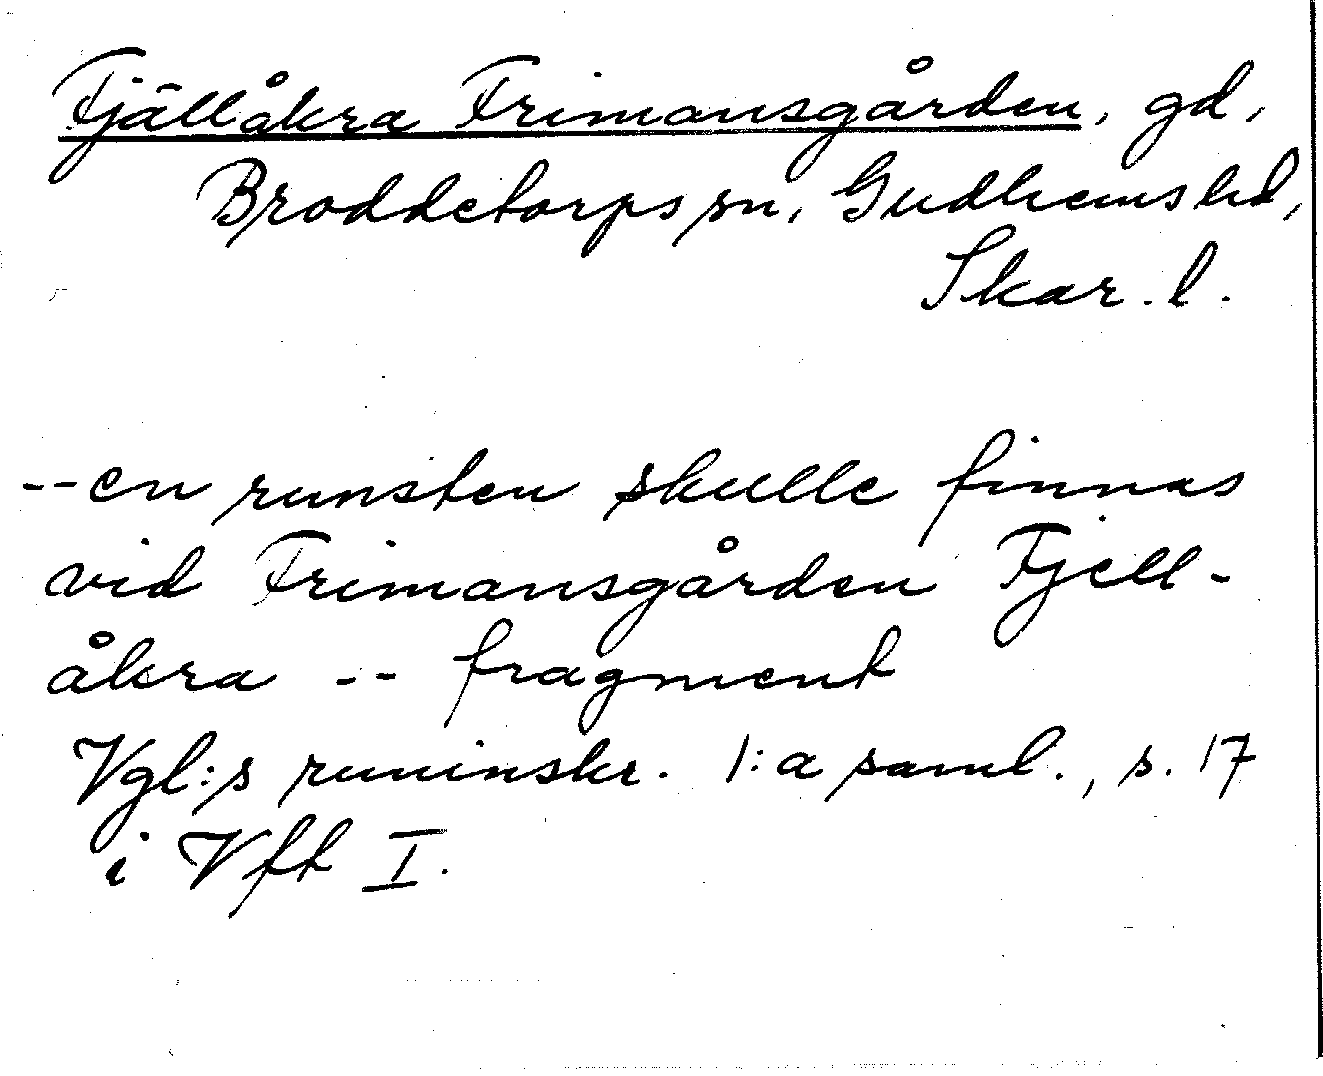 Fjällåkra Frimansgården, gd,
Broddetorps sn, Gudhems hd,
Skar. l.
--en runsten skulle finnas
vid Frimansgården Fjell-
åkra -- fragment
Vgl:s runinskr. 1:a saml., s. 17
i Vft I.